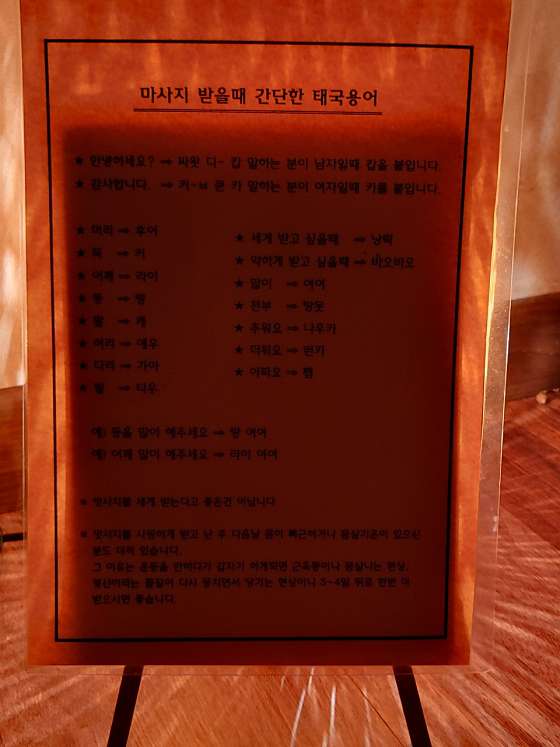 마사지 받을때 간단한 태국용어
★ 안녕하세요? ⇒ 싸왓 디~ 캅 말하는 분이 남자일때 캅을 붙입니다.
★ 감사합니다. ⇒ 카 말하는 분이 여자일때 카를 붙입니다.
★ 머리 ⇒ 후어
★ 목 ⇒ 커
★ 어깨 ⇒ 라이
★ 등 ⇒
★ 팔 ⇒ 캐
★ 허리 ⇒ 에우
★ 다리 ⇒
★ 발 ⇒ 타우
★ 세게 받고 싶을때 ⇒ 낭락
★ 약하게 받고 싶을때 ⇒ 바오바오
★ 많이 ⇒ 여여
★ 전부 ⇒ 탕못
★ 추워요 ⇒ 나우카
★ 더워요 ⇒ 런카
★ 아파요 ⇒ 쨉
예) 등을 많이 해주세요 ⇒ 여여
예) 어깨 많이 해주세요 ⇒ 라이 여여
※ 맛사지를 세게 받는다고 좋은건 아닙니다
※ 맛사지를 시원하게 받고 난 후 다음날 몸이 뻐근하거나 몸살기운이 있으신
분도 더러 있습니다.
그 이유는 운동을 안하다가 갑자기 하게되면 근육통이나 몸살나는 현상,
뭉친 다시 뭉치면서 당기는 현상이니 3~4일 뒤로 한번 더
받으시면 좋습니다.